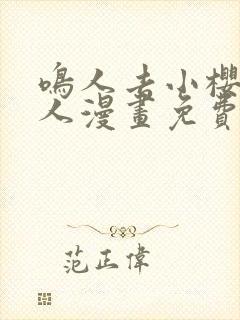 鳴人去小櫻
人漫畫免費
范正偉